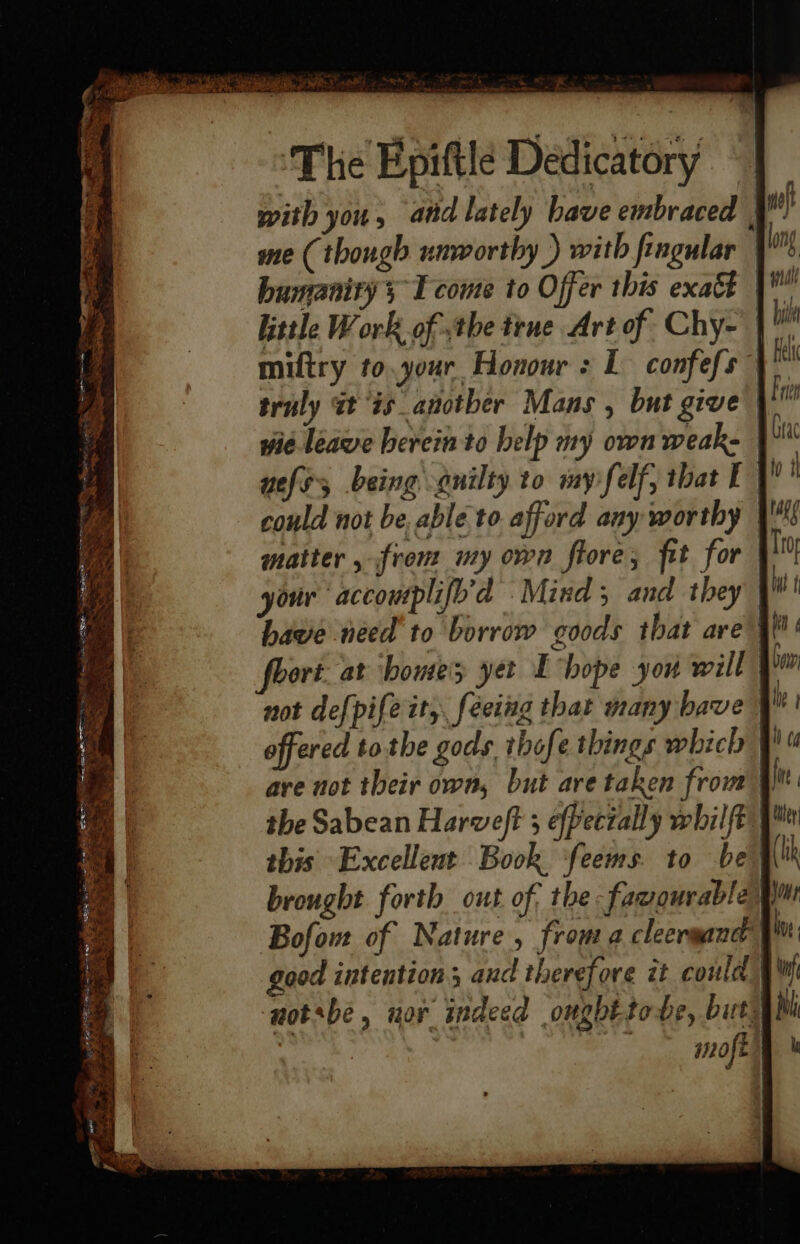 The Epiſtle Dedicatory
with you, and lately have embraced
me (though unworthy) with ſingular
humanity; I come to Offer this exact
little Work of the true Art of Chy-
miſtry to your Honour: I confeſs
truly it is another Mans, but give
me leave herein to help my own weak-
neſs; being guilty to my ſelf, that I
could not be able to afford any worthy
matter, from my own ſtore, fit for
your accompliſh'd Mind; and they
have need to borrow goods that are
ſhort at home; yet I hope you will
not deſpiſe it, ſeeing that many have
offered to the gods thoſe things which
are not their own, but are taken from
the Sabean Harveſt; eſpecially whilſt
this Excellent Book ſeems to be
brought forth out of the favourable
Boſom of Nature, from a cleer and
good intention; and therefore it could
not be, nor indeed ought to be, but
moſt